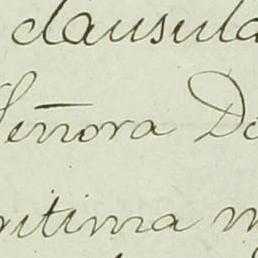 clausula
Señora Do
itima m